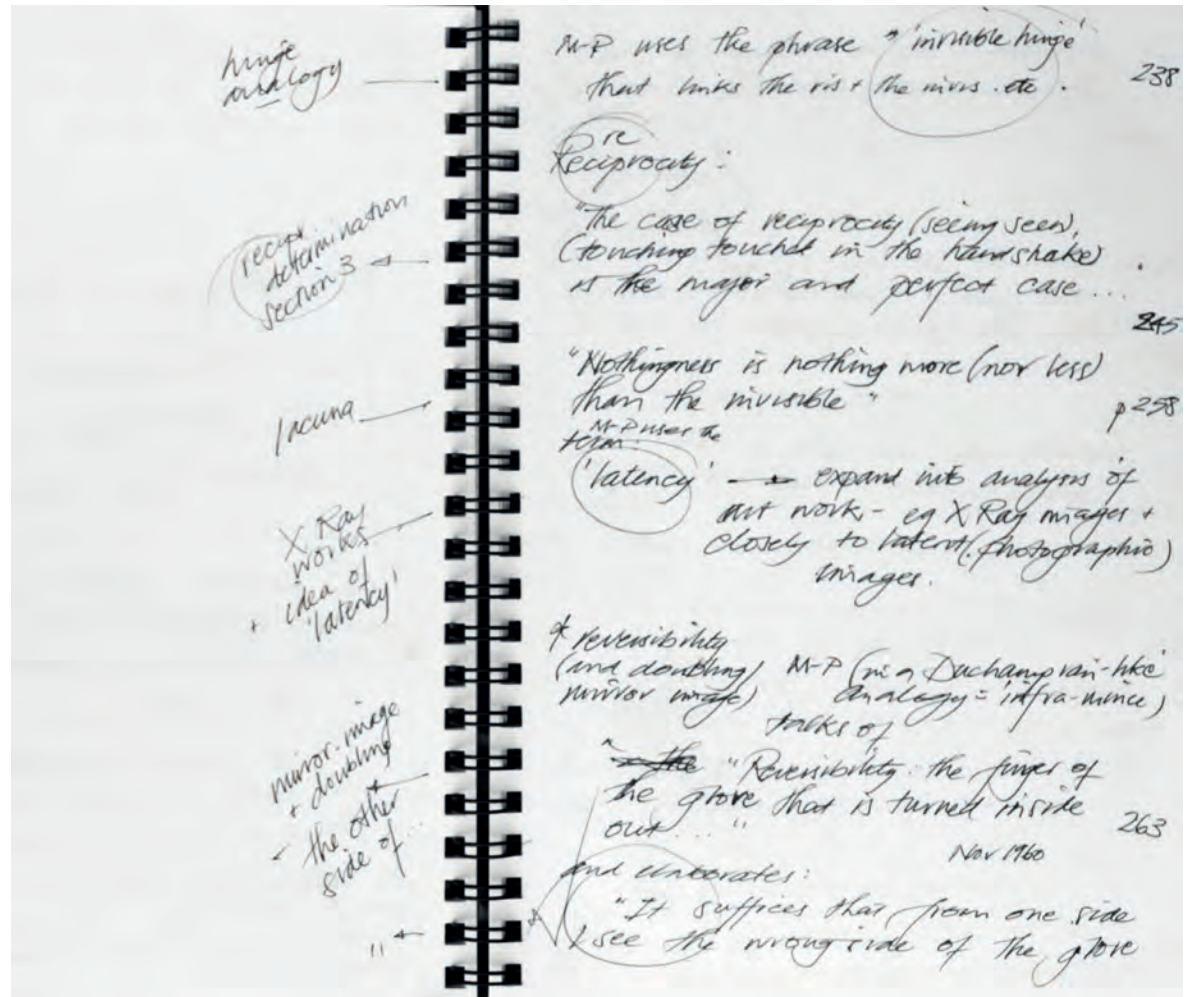 hinge
analogy
recipr
determination
section 3
lacuna
X Ray
works
+ idea of
'latency'
mirror-image
+ doubling
the other
side of...
"
M-P uses the phrase "'invisible hinge'
that links the vis + the invis. etc.
238
re
Reciprocity:
"The case of reciprocity (seeing seen),
(touching touched in the handshake)
is the major and perfect case...
245
"Nothingness is nothing more (nor less)
than the invisible"
p 258
M-P uses the
term:
'latency' → expand into analysis of
art work - eg X Ray images +
closely to latent (photographic)
images.
* reversibility
(and doubling)
mirror image)
M-P (in a Duchampian-like
analogy = 'infra-mince)
talks of
the "Reversibility: the finger of
the glove that is turned inside
out..."
263
Nov 1960
and elaborates:
"It suffices that from one side
I see the wrong side of the glove